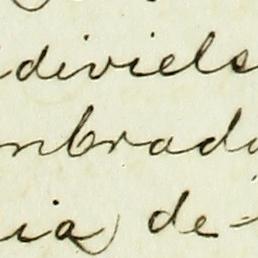 diviels
mbrado
ia) de-